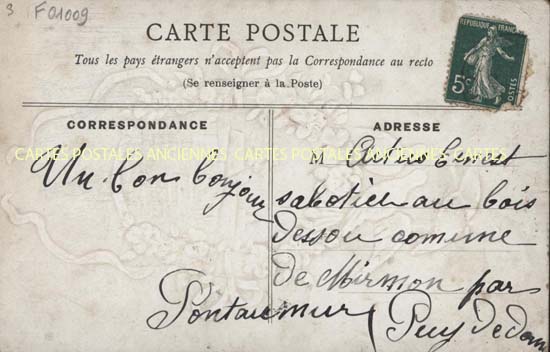 3 F01009
CARTE POSTALE
Tous les pays étrangers n'acceptent pas la Correspondance au recto
(Se renseigner à la Poste)
REPUBLIQUE FRANÇAISE
5c
POSTES
CORRESPONDANCE
Un bon bonjour
ADRESSE
M Ernest
sabotier au bois
dessou comune
de Mirmon par
Pontaumur
Puy de dom
CARTES POSTALES ANCIENNES CARTES POSTALES ANCIENNES CARTES